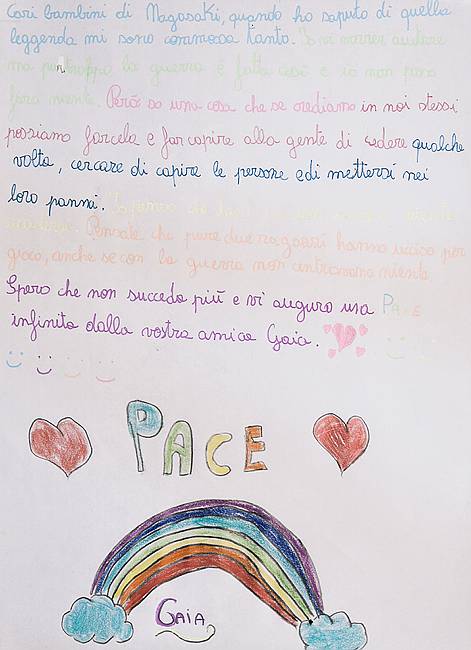 Cari bambini di Nagasaki, quando ho saputo di quella
leggenda mi sono commossa tanto. Io vi vorrei aiutare
ma purtroppo la guerra è fatta così e io non posso
fare niente. Però so una cosa che se crediamo in noi stessi
possiamo farcela e far capire alla gente di cedere qualche
volta, cercare di capire le persone e di mettersi nei
loro panni. Io penso che
Pensate che pure due ragazzi hanno ucciso per
gioco, anche se con la guerra non centravano niente
Spero che non succeda più e vi auguro una PACE
infinita dalla vostra amica Gaia.
PACE
GAIA